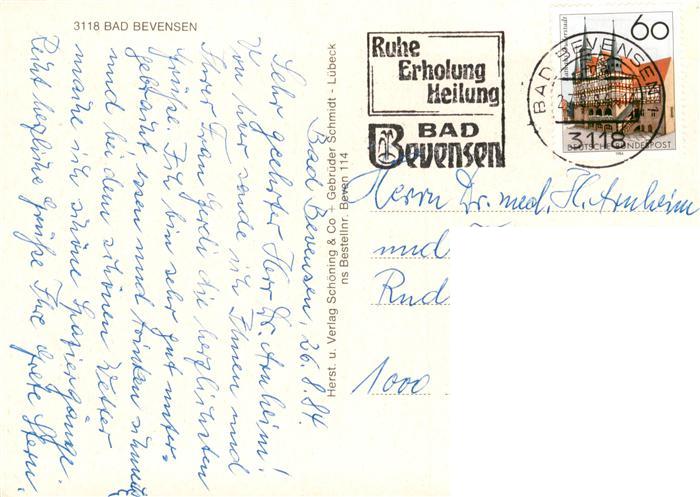 3118 BAD BEVENSEN
Bad Bevensen, 26.8.84
Sehr geehrter Herr Dr. Arnheim!
Von hier sende ich Ihnen und
Ihrer Frau Gerdi die herzlichsten
Grüße. Ich bin sehr gut unter-
gebracht, essen und trinken schmeckt
und bei dem schönen Wetter
mache ich schöne Spaziergänge.
Recht herzliche Grüße Ihre Grete Stern.
Herst. u. Verlag Schöning & Co + Gebrüder Schmidt - Lübeck
ns Bestellnr. Beven 114
Ruhe
Erholung
Heilung
BAD
Bevensen
60
BAD BEVENSEN 1
3118
DEUTSCHE BUNDESPOST
Herrn Dr. med. H. Arnheim
und
Rud
1000